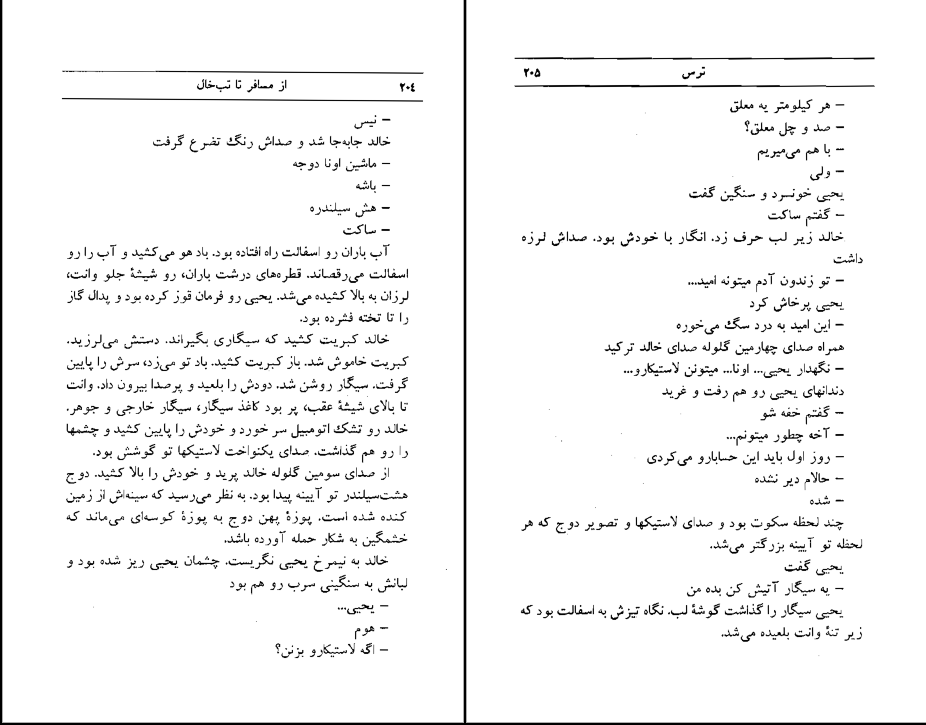 ۲۰۴
از مسافر تا تب‌خال
– نیس
خالد جابه‌جا شد و صداش رنگ تضرع گرفت
– ماشین اونا دوجه
– باشه
– هش سیلندره
– ساکت
آب باران رو اسفالت راه افتاده بود. باد هو می‌کشید و آب را رو
اسفالت می‌رقصاند. قطره‌های درشت باران، رو شیشهٔ جلو وانت،
لرزان به بالا کشیده می‌شد. یحیی رو فرمان قوز کرده بود و پدال گاز
را تا تخته فشرده بود.
خالد کبریت کشید که سیگاری بگیراند. دستش می‌لرزید.
کبریت خاموش شد. باز کبریت کشید. باد تو می‌زد، سرش را پایین
گرفت. سیگار روشن شد. دودش را بلعید و پرصدا بیرون داد. وانت
تا بالای شیشهٔ عقب، پر بود کاغذ سیگار، سیگار خارجی و جوهر.
خالد رو تشک اتومبیل سر خورد و خودش را پایین کشید و چشمها
را رو هم گذاشت. صدای یکنواخت لاستیکها تو گوشش بود.
از صدای سومین گلوله خالد پرید و خودش را بالا کشید. دوج
هشت‌سیلندر تو آیینه پیدا بود. به نظر می‌رسید که سینه‌اش از زمین
کنده شده است. پوزهٔ پهن دوج به پوزهٔ کوسه‌ای می‌ماند که
خشمگین به شکار حمله آورده باشد.
خالد به نیمرخ یحیی نگریست. چشمان یحیی ریز شده بود و
لبانش به سنگینی سرب رو هم بود
– یحیی...
– هوم
– اگه لاستیکارو بزنن؟
ترس
۲۰۵
– هر کیلومتر یه معلق
– صد و چل معلق؟
– با هم می‌میریم
– ولی
یحیی خونسرد و سنگین گفت
– گفتم ساکت
خالد زیر لب حرف زد. انگار با خودش بود. صداش لرزه
داشت
– تو زندون آدم میتونه امید...
یحیی پرخاش کرد
– این امید به درد سگ می‌خوره
همراه صدای چهارمین گلوله صدای خالد ترکید
– نگهدار یحیی... اونا... میتونن لاستیکارو...
دندانهای یحیی رو هم رفت و غرید
– گفتم خفه شو
– آخه چطور میتونم...
– روز اول باید این حسابارو می‌کردی
– حالام دیر نشده
– شده
چند لحظه سکوت بود و صدای لاستیکها و تصویر دوج که هر
لحظه تو آیینه بزرگتر می‌شد.
یحیی گفت
– یه سیگار آتیش کن بده من
یحیی سیگار را گذاشت گوشهٔ لب. نگاه تیزش به اسفالت بود که
زیر تنهٔ وانت بلعیده می‌شد.